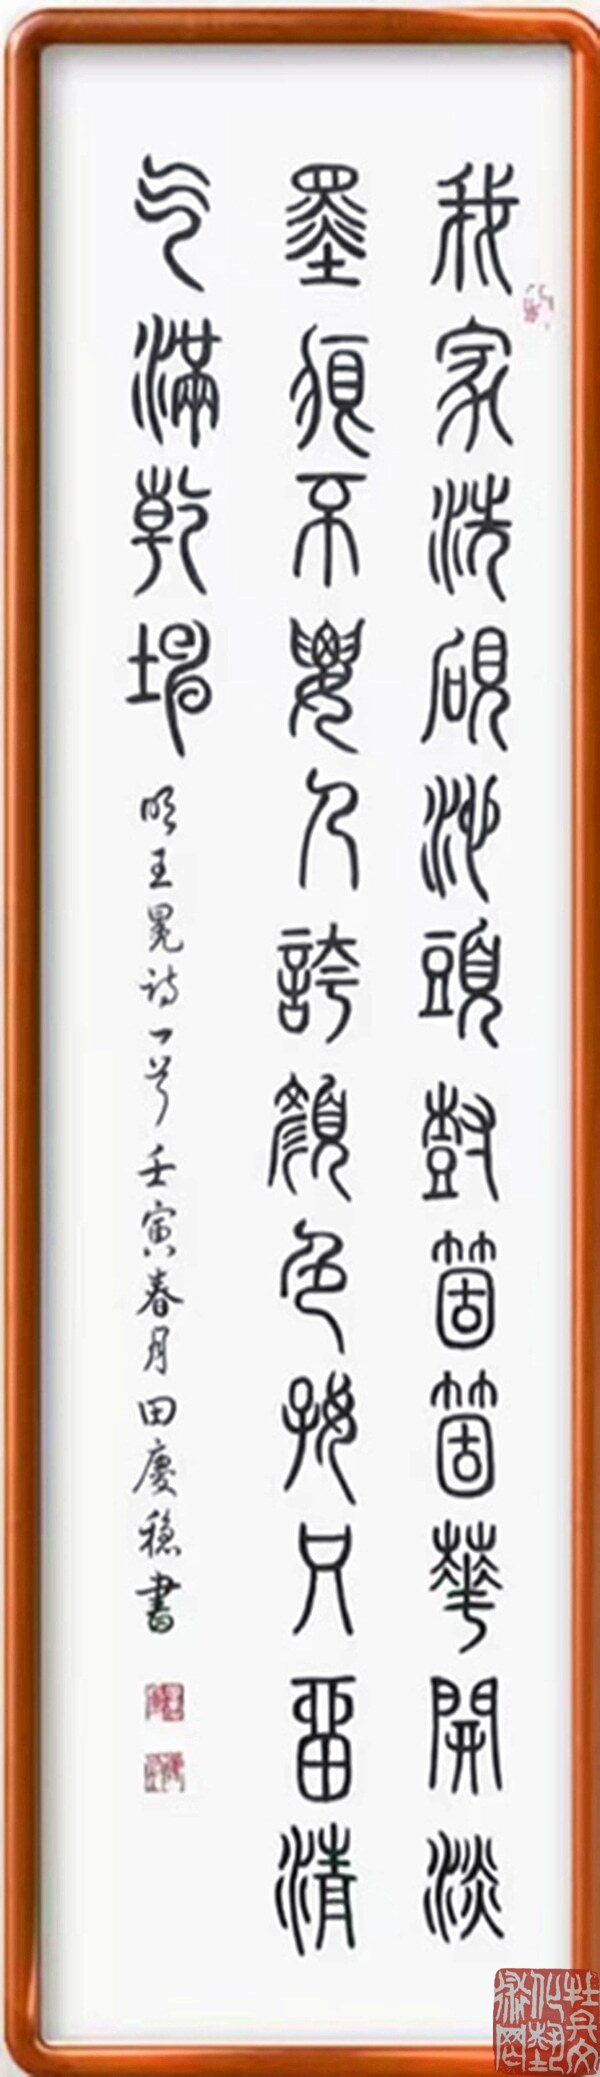 我家洗硯池頭樹箇箇華開淡
墨痕不要人誇顏色好只留清
气滿乾坤
明王冕诗一首壬寅春月田慶穩書